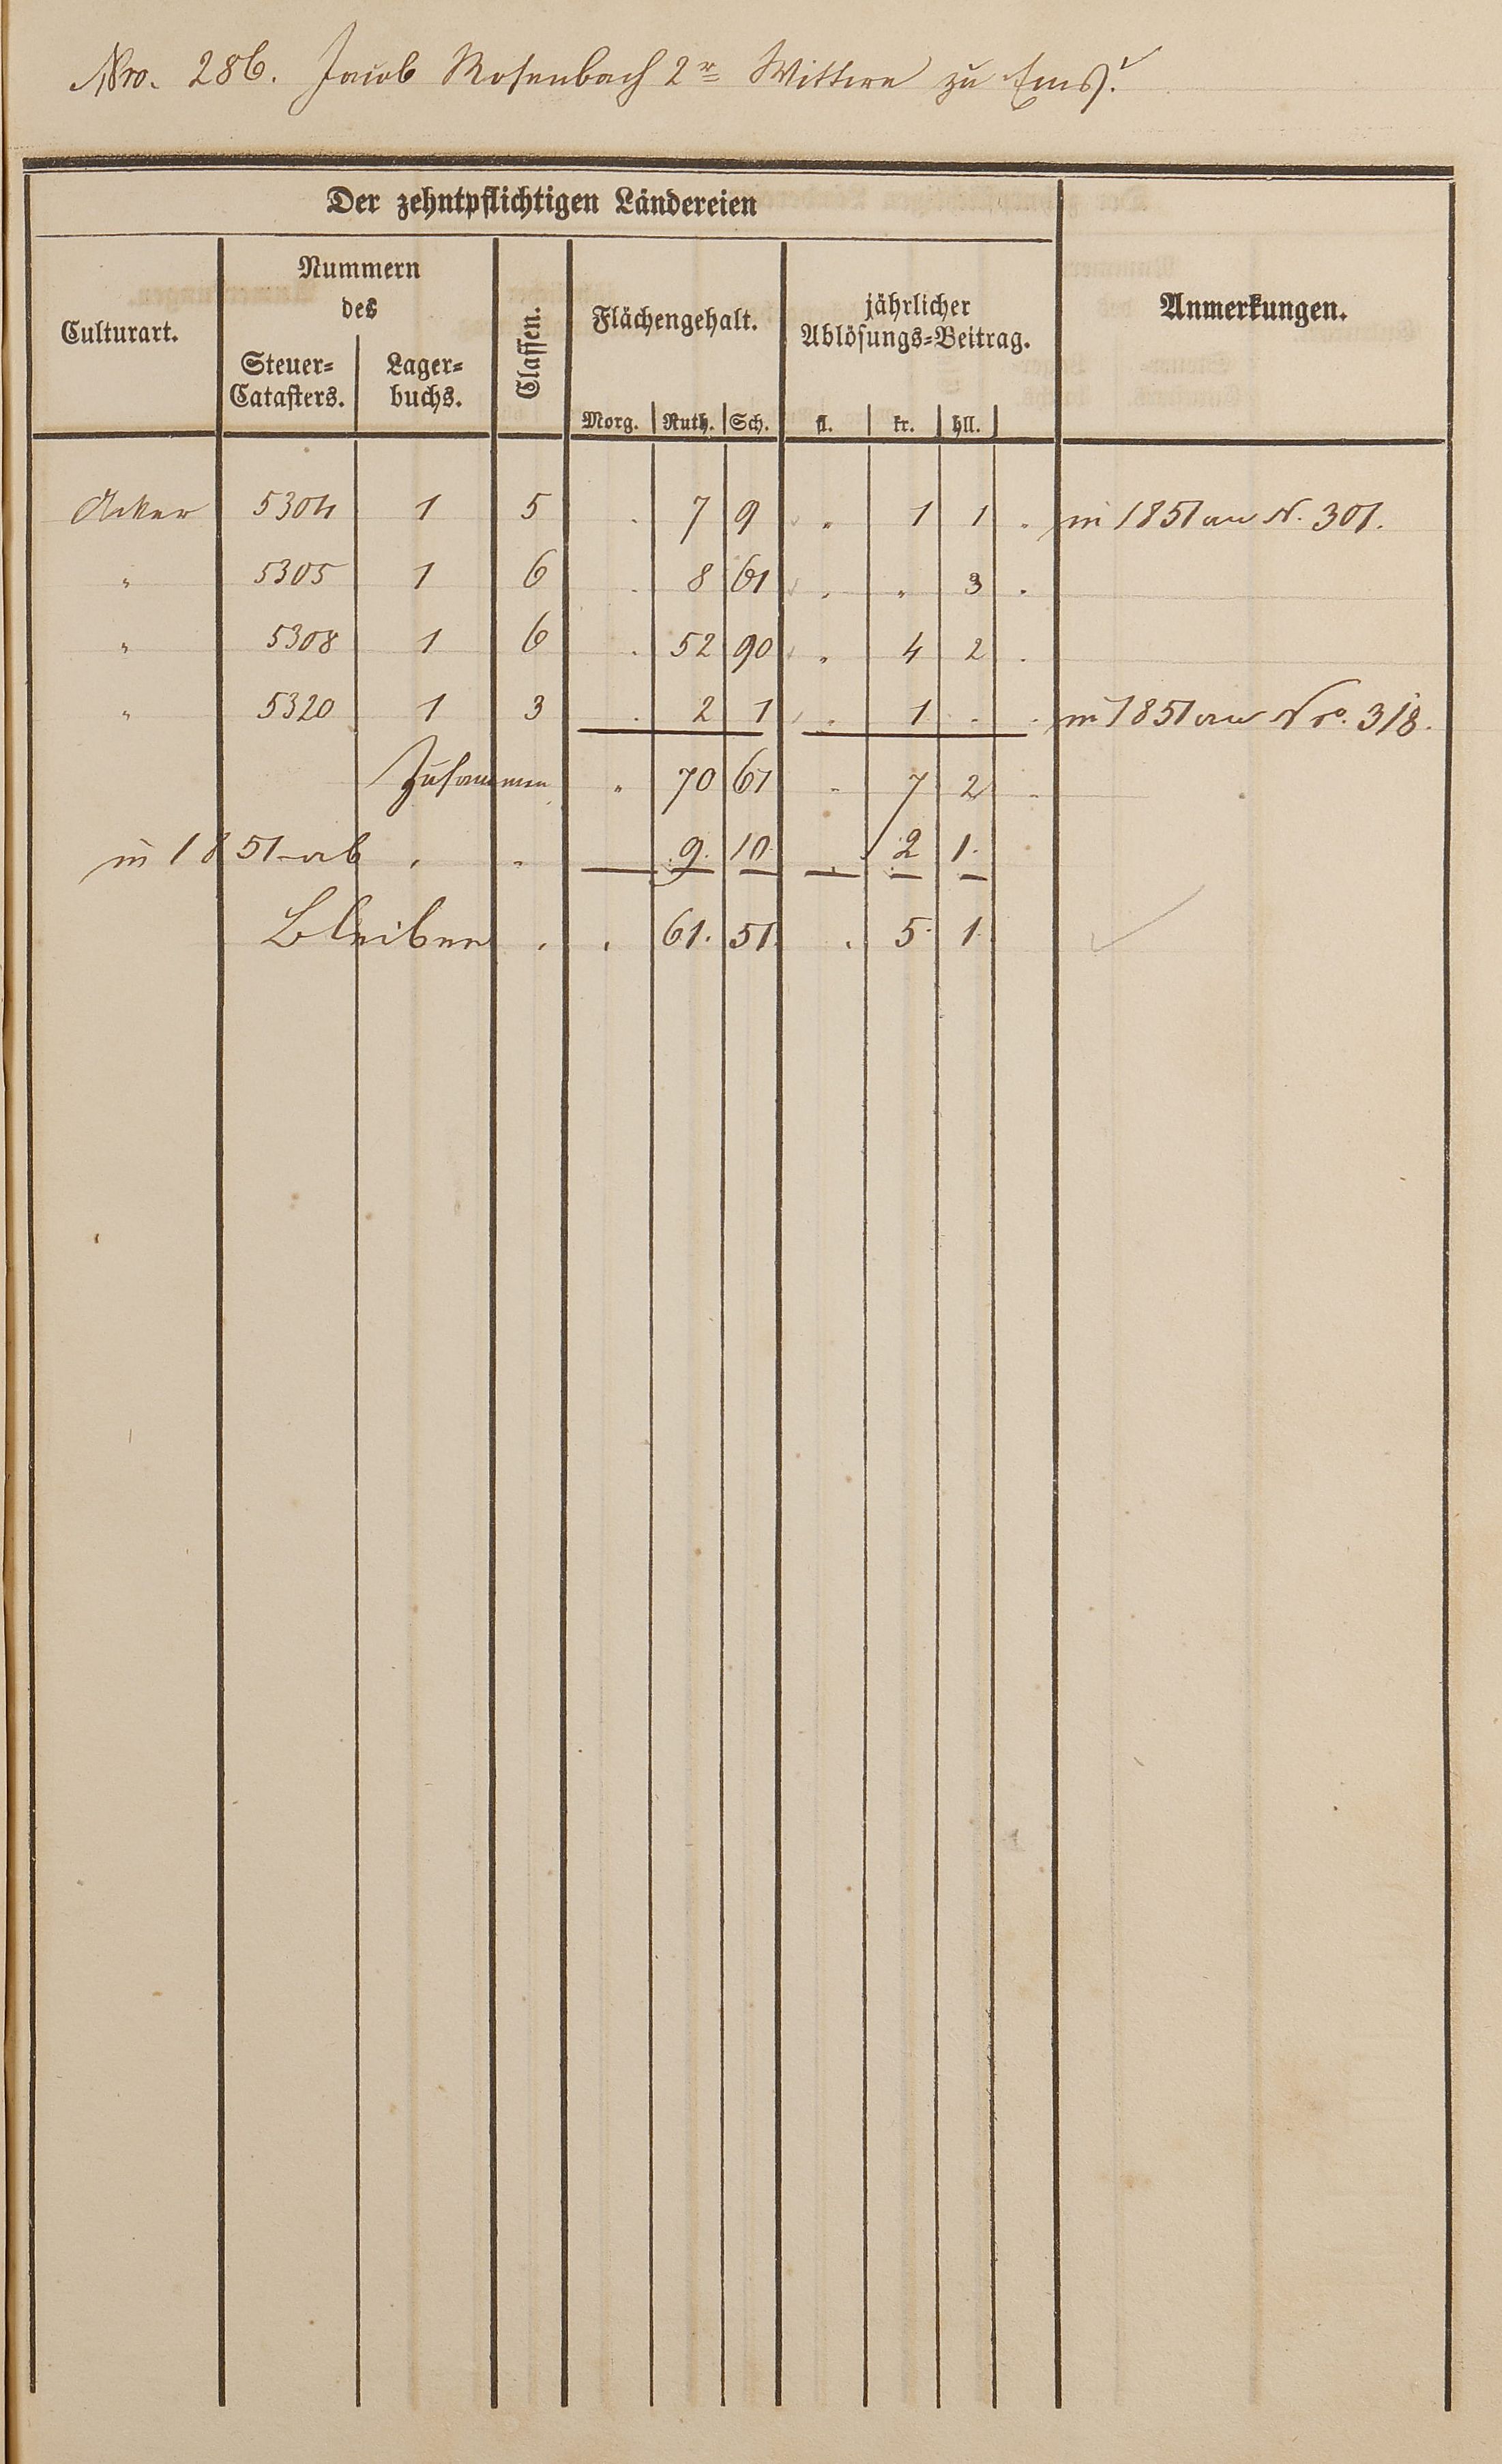 Nro. 286. Jacob Rosenbach 2r Wittwe zu Ems.
Der zehntpflichtigen Ländereien
Culturart.
Nummern
des
Steuer-
Catasters.
Lager-
buchs.
Classen.
Flächengehalt.
Morg. Ruth. Sch.
jährlicher
Ablösungs-Beitrag.
fl. kr. hll.
Anmerkungen.
Acker 5304 1 5 . 7 9 „ 1 1 . in 1851 an N. 301.
„ 5305 1 6 . 8 61 „ „ 3 .
„ 5308 1 6 . 52 90 „ 4 2 .
„ 5320 1 3 . 2 1 „ 1 . . in 1851 an Nro. 318.
Zusammen „ 70 61 „ 7 2 .
in 1851 ab . „ 9. 10. . 2 1.
Bleiben . . 61. 51. . 5. 1.